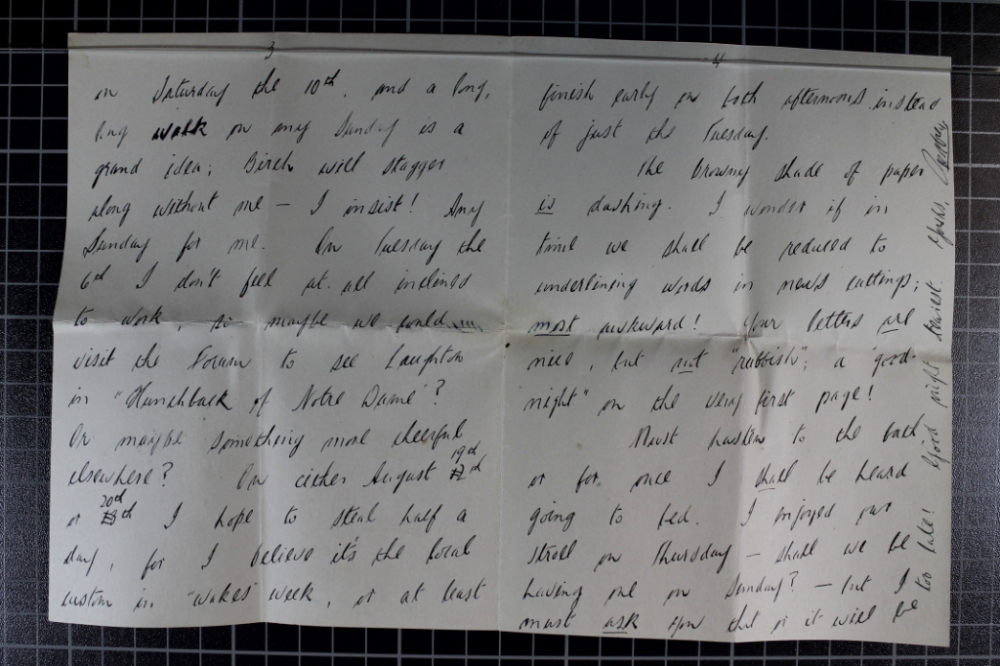 3
on Saturday the 10th, and a long,
long walk on my Sunday is a
grand idea; Birch will stagger
along without me — I insist! Any
Sunday for me. On Tuesday the
6th I don't feel at all inclined
to work, so maybe we could
visit the Forum to see Laughton
in "Hunchback of Notre Dame"?
Or maybe something more cheerful
elsewhere? On either August 19th
or 20th I hope to steal half a
day, for I believe it's the local
custom in "wakes" week, or at least
4
finish early on both afternoons instead
of just the Tuesday.
The browny shade of paper
is dashing. I wonder if in
time we shall be reduced to
underlining words in news cuttings;
most awkward! Your letters are
nice, but not "rubbish"; a "good-
night" on the very first page!
Must hasten to the bath
or for once I shall be heard
going to bed. I enjoyed our
stroll on Thursday — shall we be
having one on Sunday? — but I
must ask you that or it will be
too late! Good night dearest. Yours,